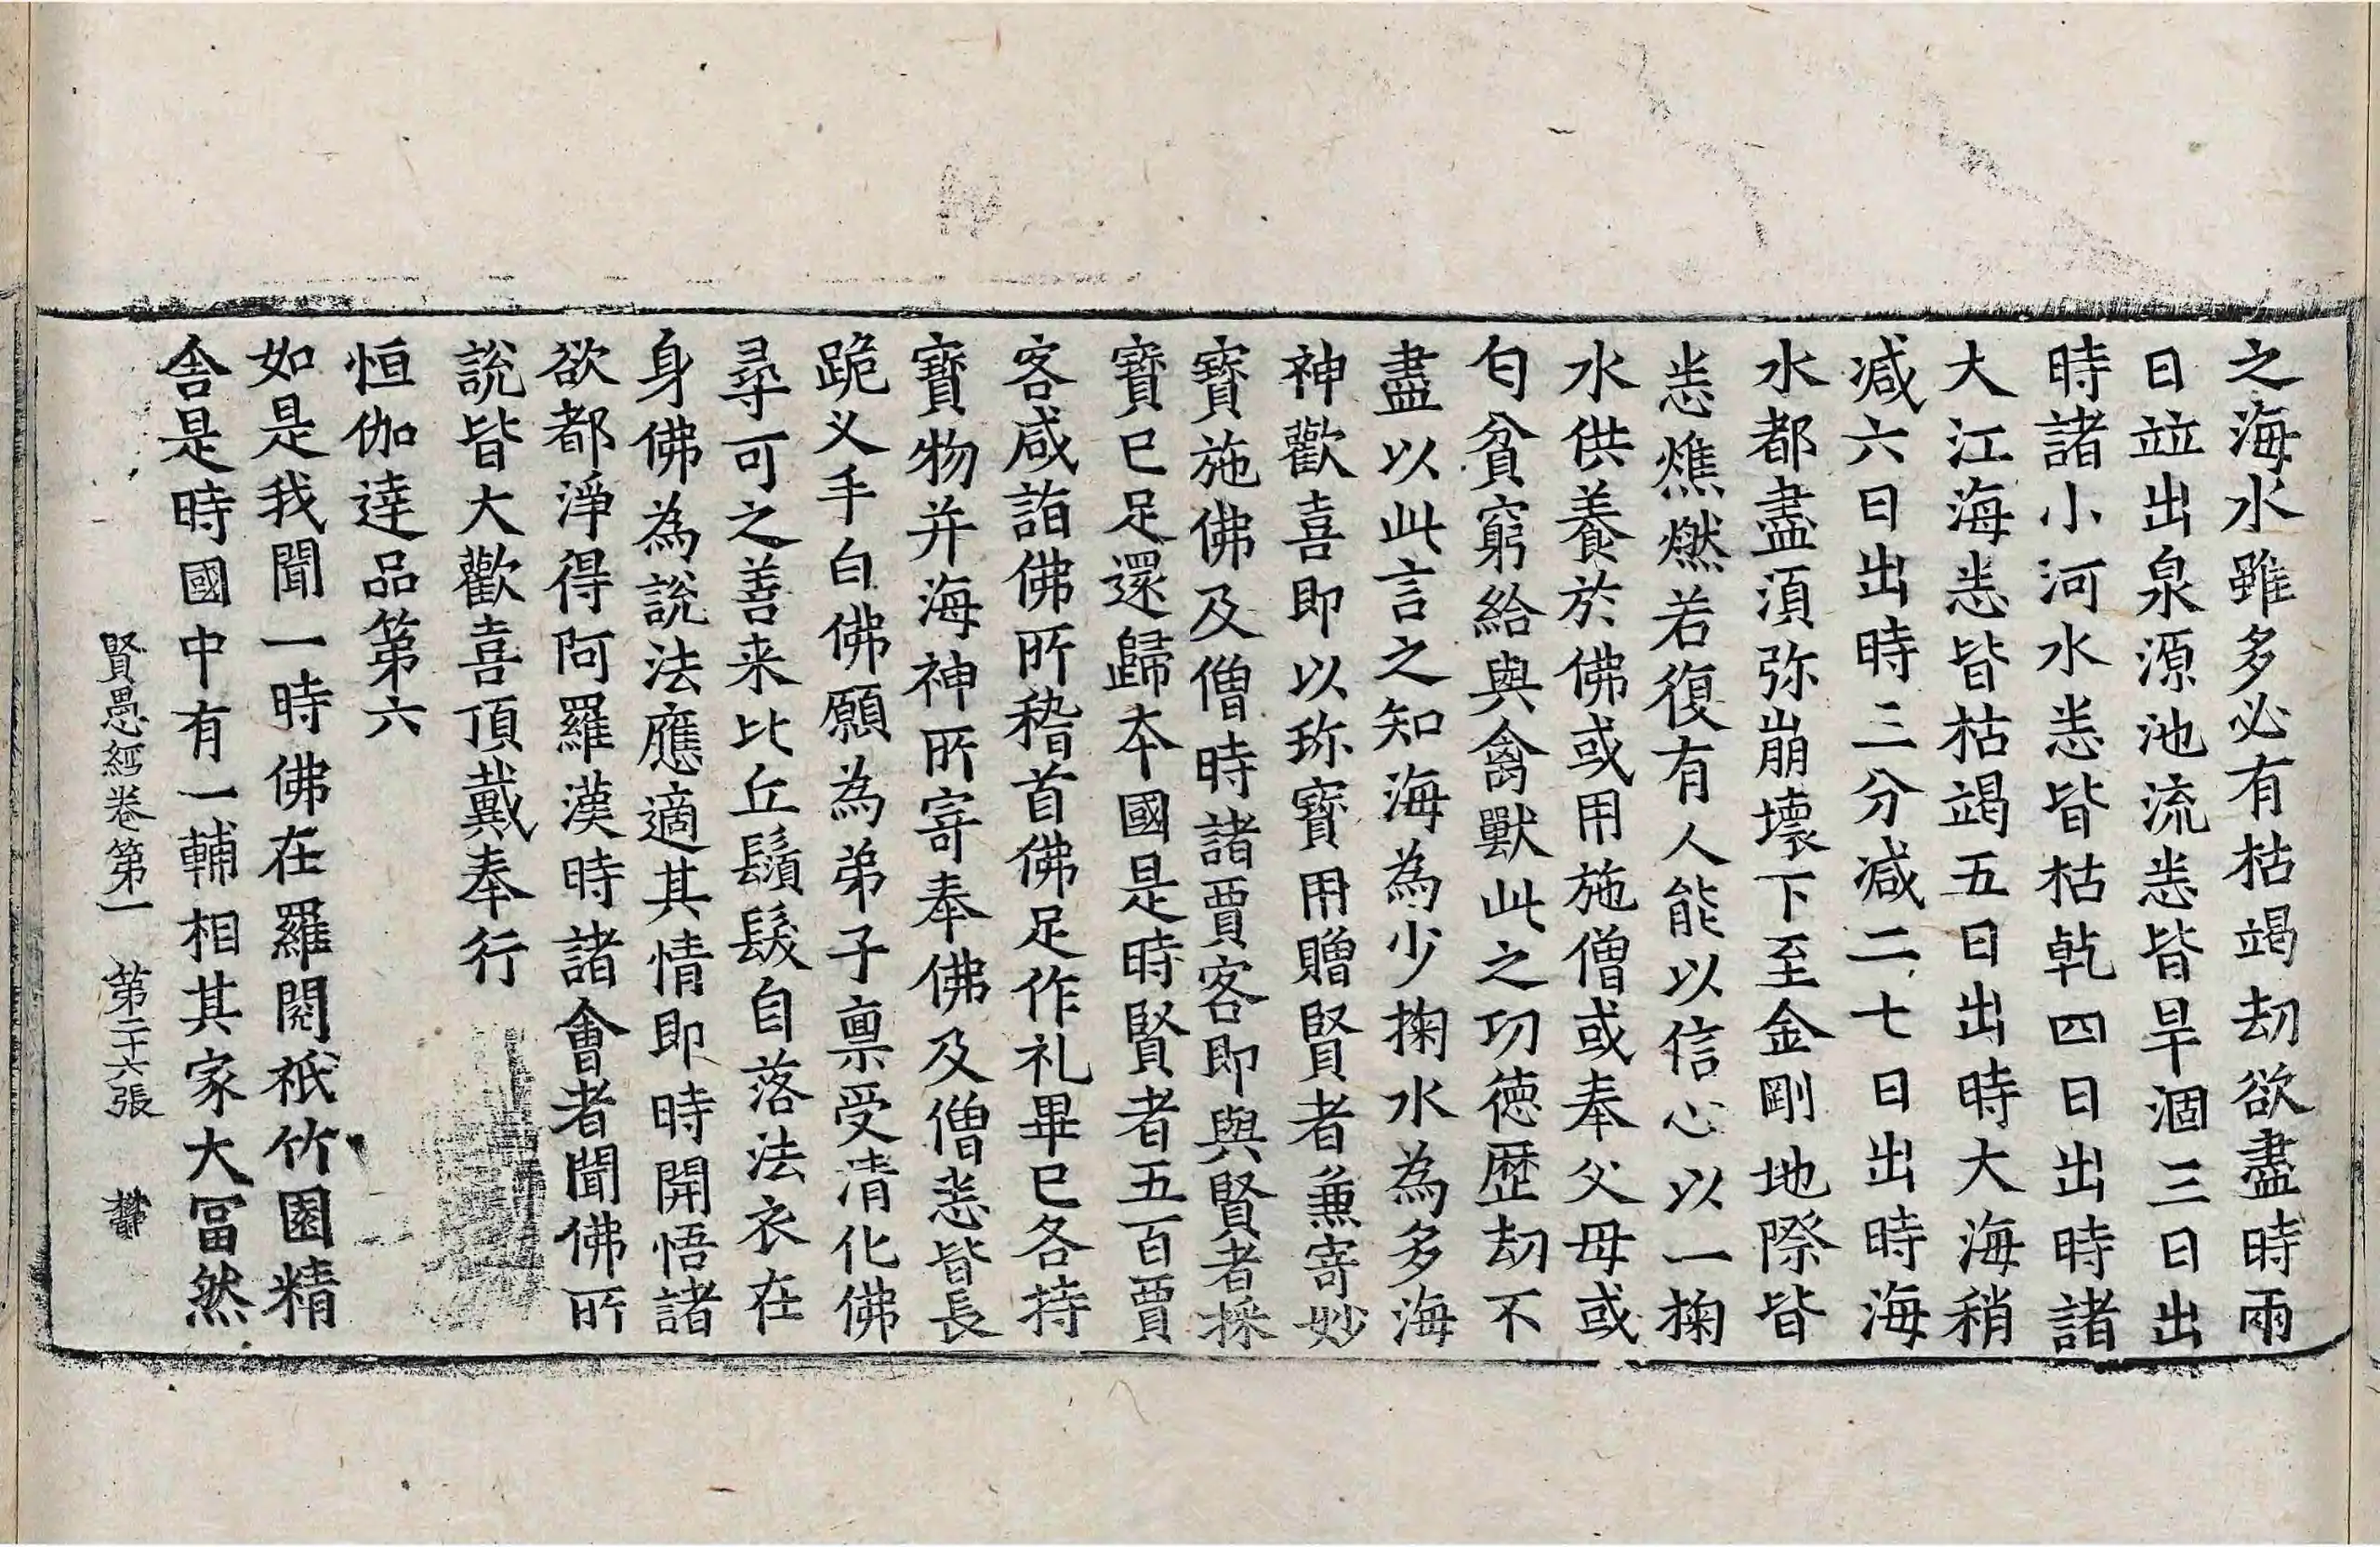 之海水雖多必有枯竭劫欲盡時兩
日竝出泉源池流悉皆旱涸三日出
時諸小河水悉皆枯乹四日出時諸
大江海悉皆枯竭五日出時大海稍
减六日出時三分减二七日出時海
水都盡湏弥崩壞下至金剛地際皆
悉燋燃若復有人能以信心以一掬
水供養於佛或用施僧或奉父母或
匂貧窮給與禽獸此之功徳歴劫不
盡以此言之知海為少掬水為多海
神歡喜即以珎寶用贈賢者兼寄妙
寶施佛及僧時諸賈客即與賢者採
寶已足還歸本國是時賢者五百賈
客咸詣佛所稽首佛足作礼畢已各持
寶物并海神所寄奉佛及僧悉皆長
跪叉手白佛願為弟子稟受清化佛
尋可之善来比丘鬚髮自落法衣在
身佛為説法應適其情即時開悟諸
欲都淨得阿羅漢時諸會者聞佛所
説皆大歡喜頂戴奉行
恒伽達品第六
如是我聞一時佛在羅閱祇竹園精
舎是時國中有一輔相其家大冨然
賢愚經卷第一 第二十六張